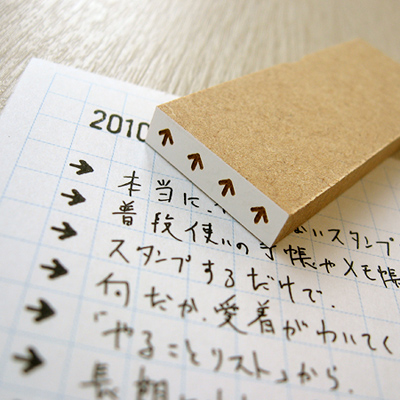 2010
本当に いスタンプ
普段使いの手帳やメモ帳
スタンプするだけで、
何だか、愛着がわいてく
「やることリスト」から、
長期